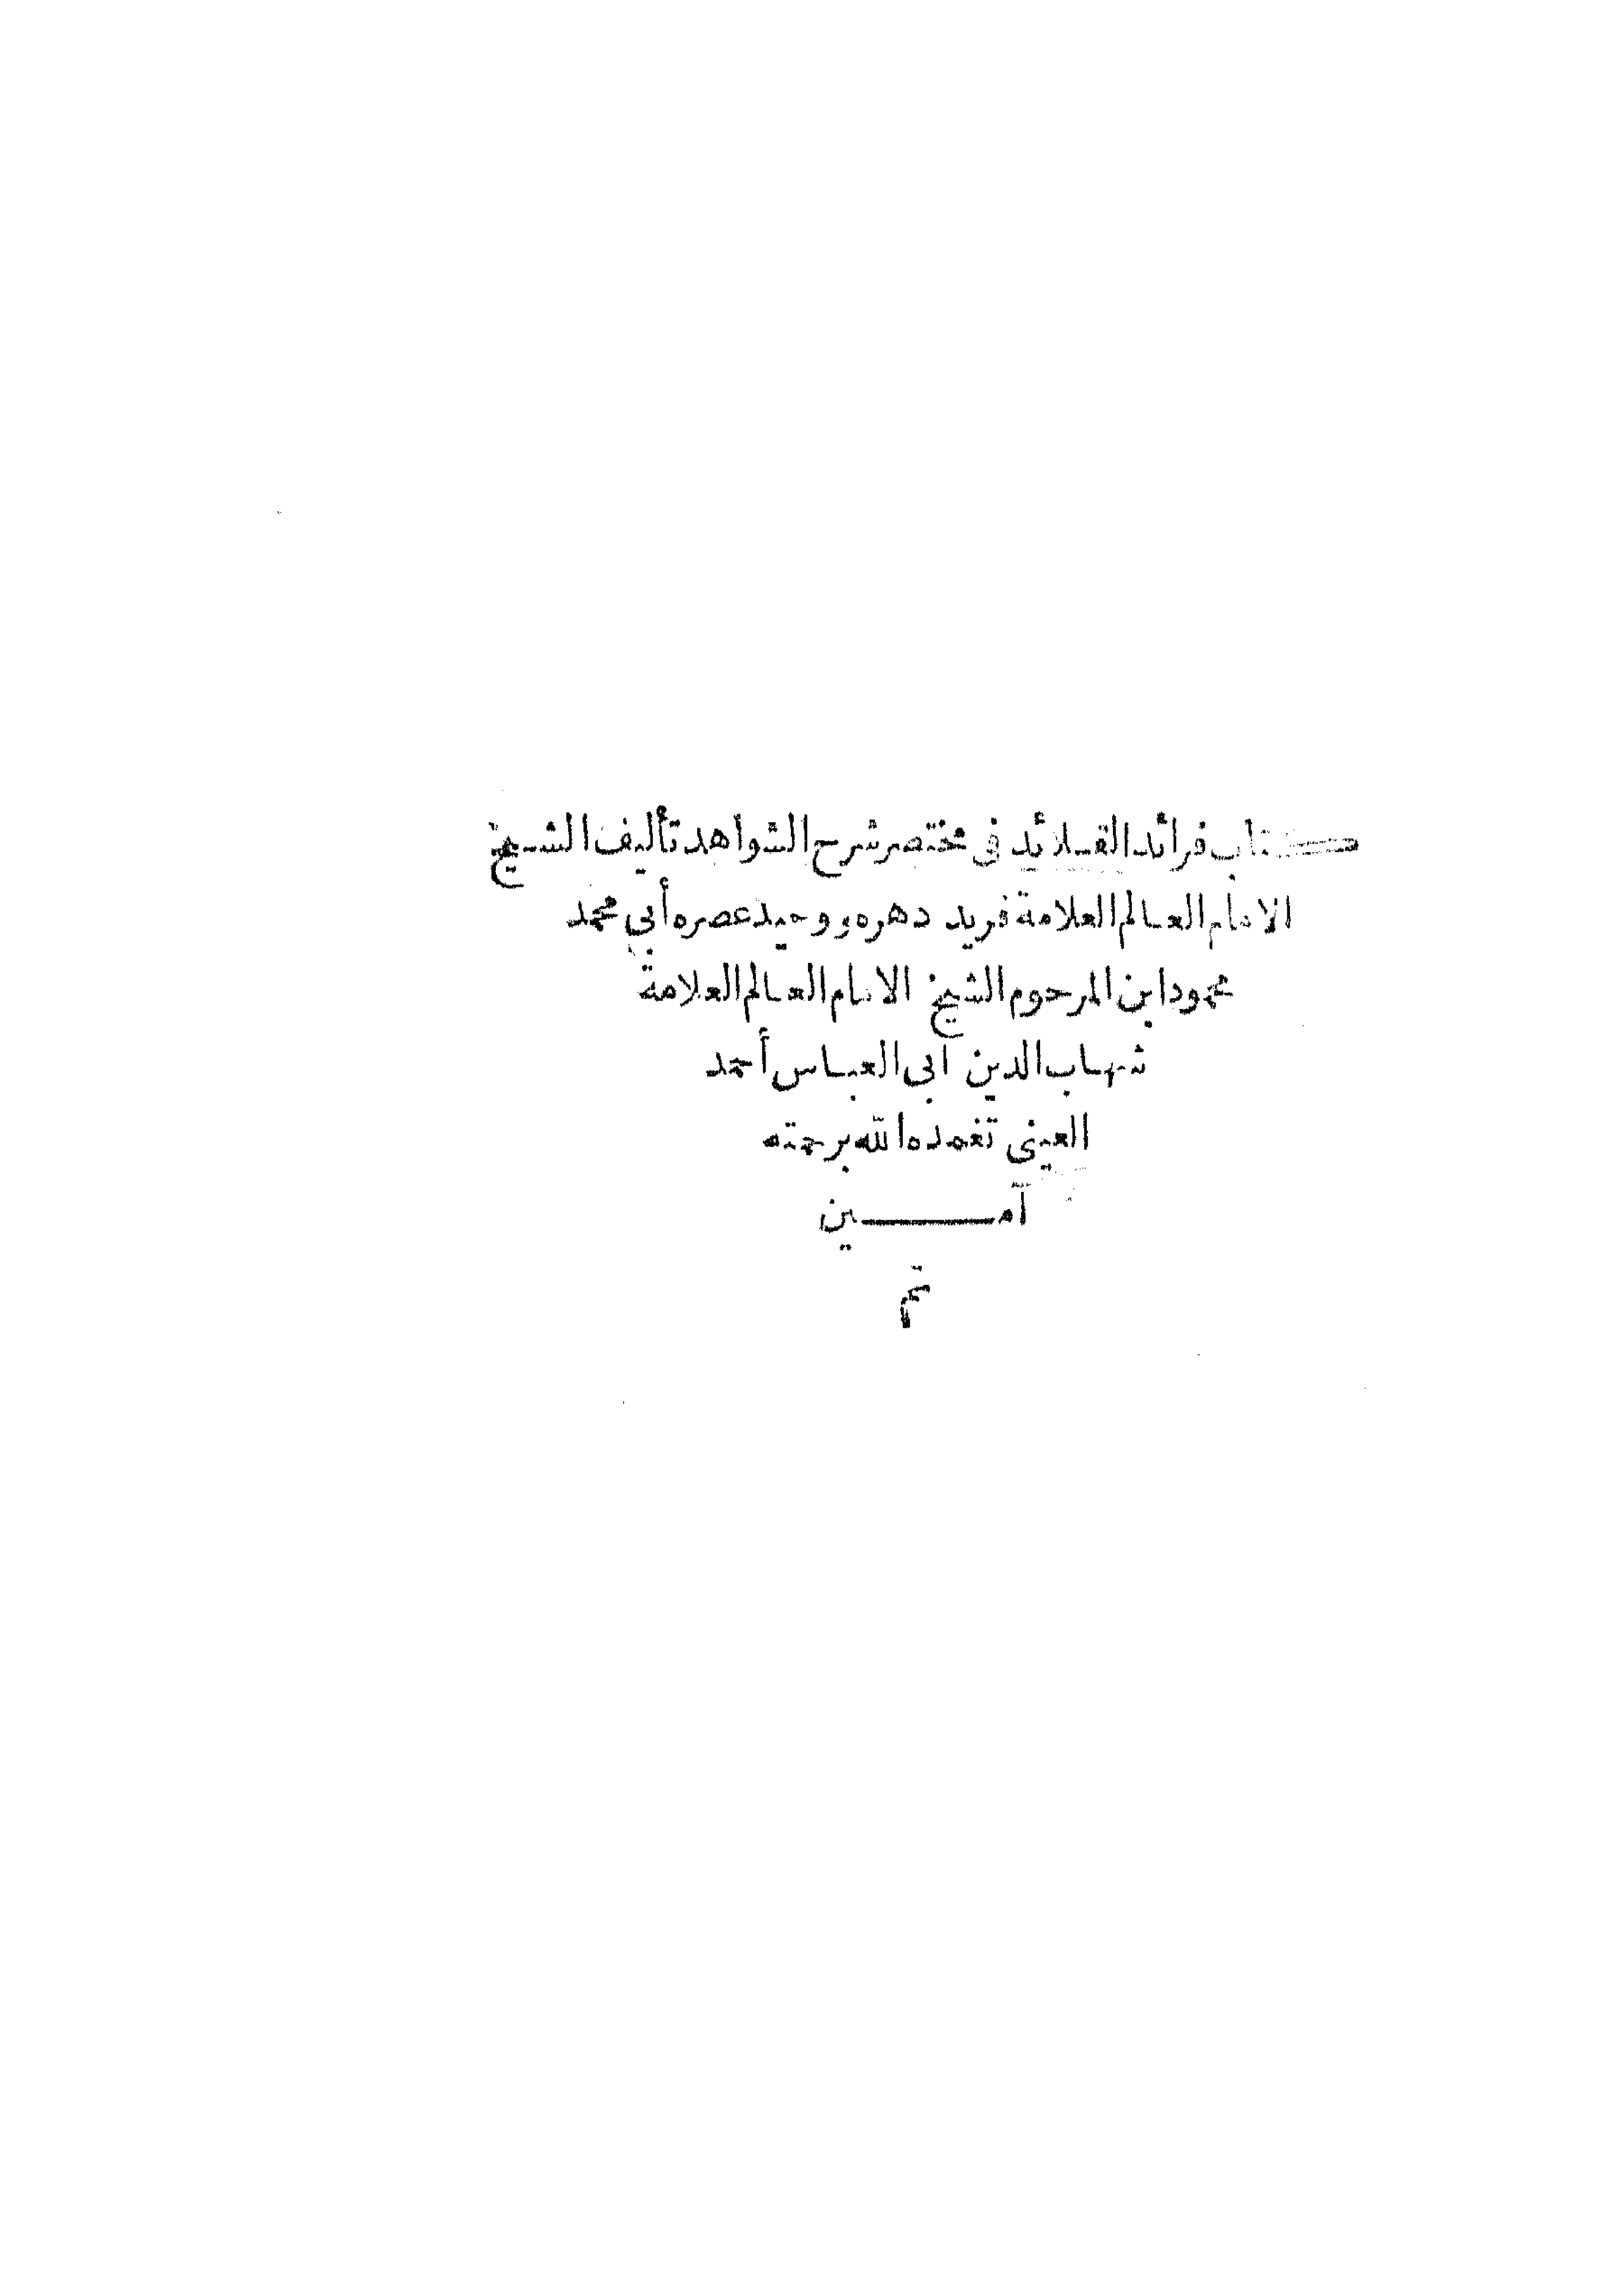 كتاب فرائد القلائد فى مختصر شرح الشواهد تأليف الشيخ
الامام العالم العلامة فريد دهره ووحيد عصره أبي محمد
محمود ابن المرحوم الشيخ الامام العالم العلامة
شهاب الدين ابى العباس أحمد
العينى تغمده الله برحمته
آمين
تم